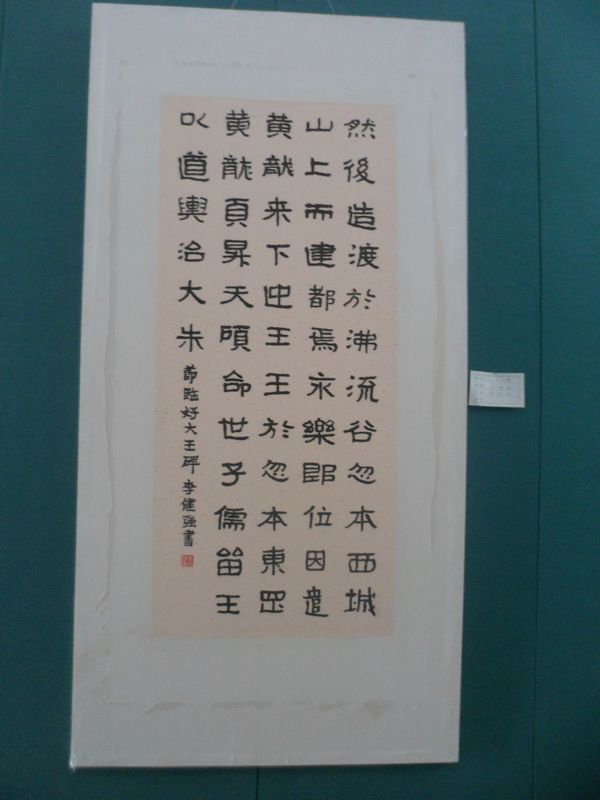 然後造渡於沸流谷忽本西城
山上而建都焉永樂即位因遣
黄龍来下迎王王於忽本東罡
黄龍頁昇天顧命世子儒留王
以道輿治大朱
节臨好大王碑 李健强書